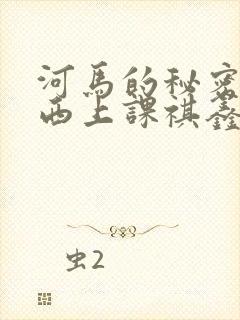 河馬的秘密
西上課祺鑫
虫2